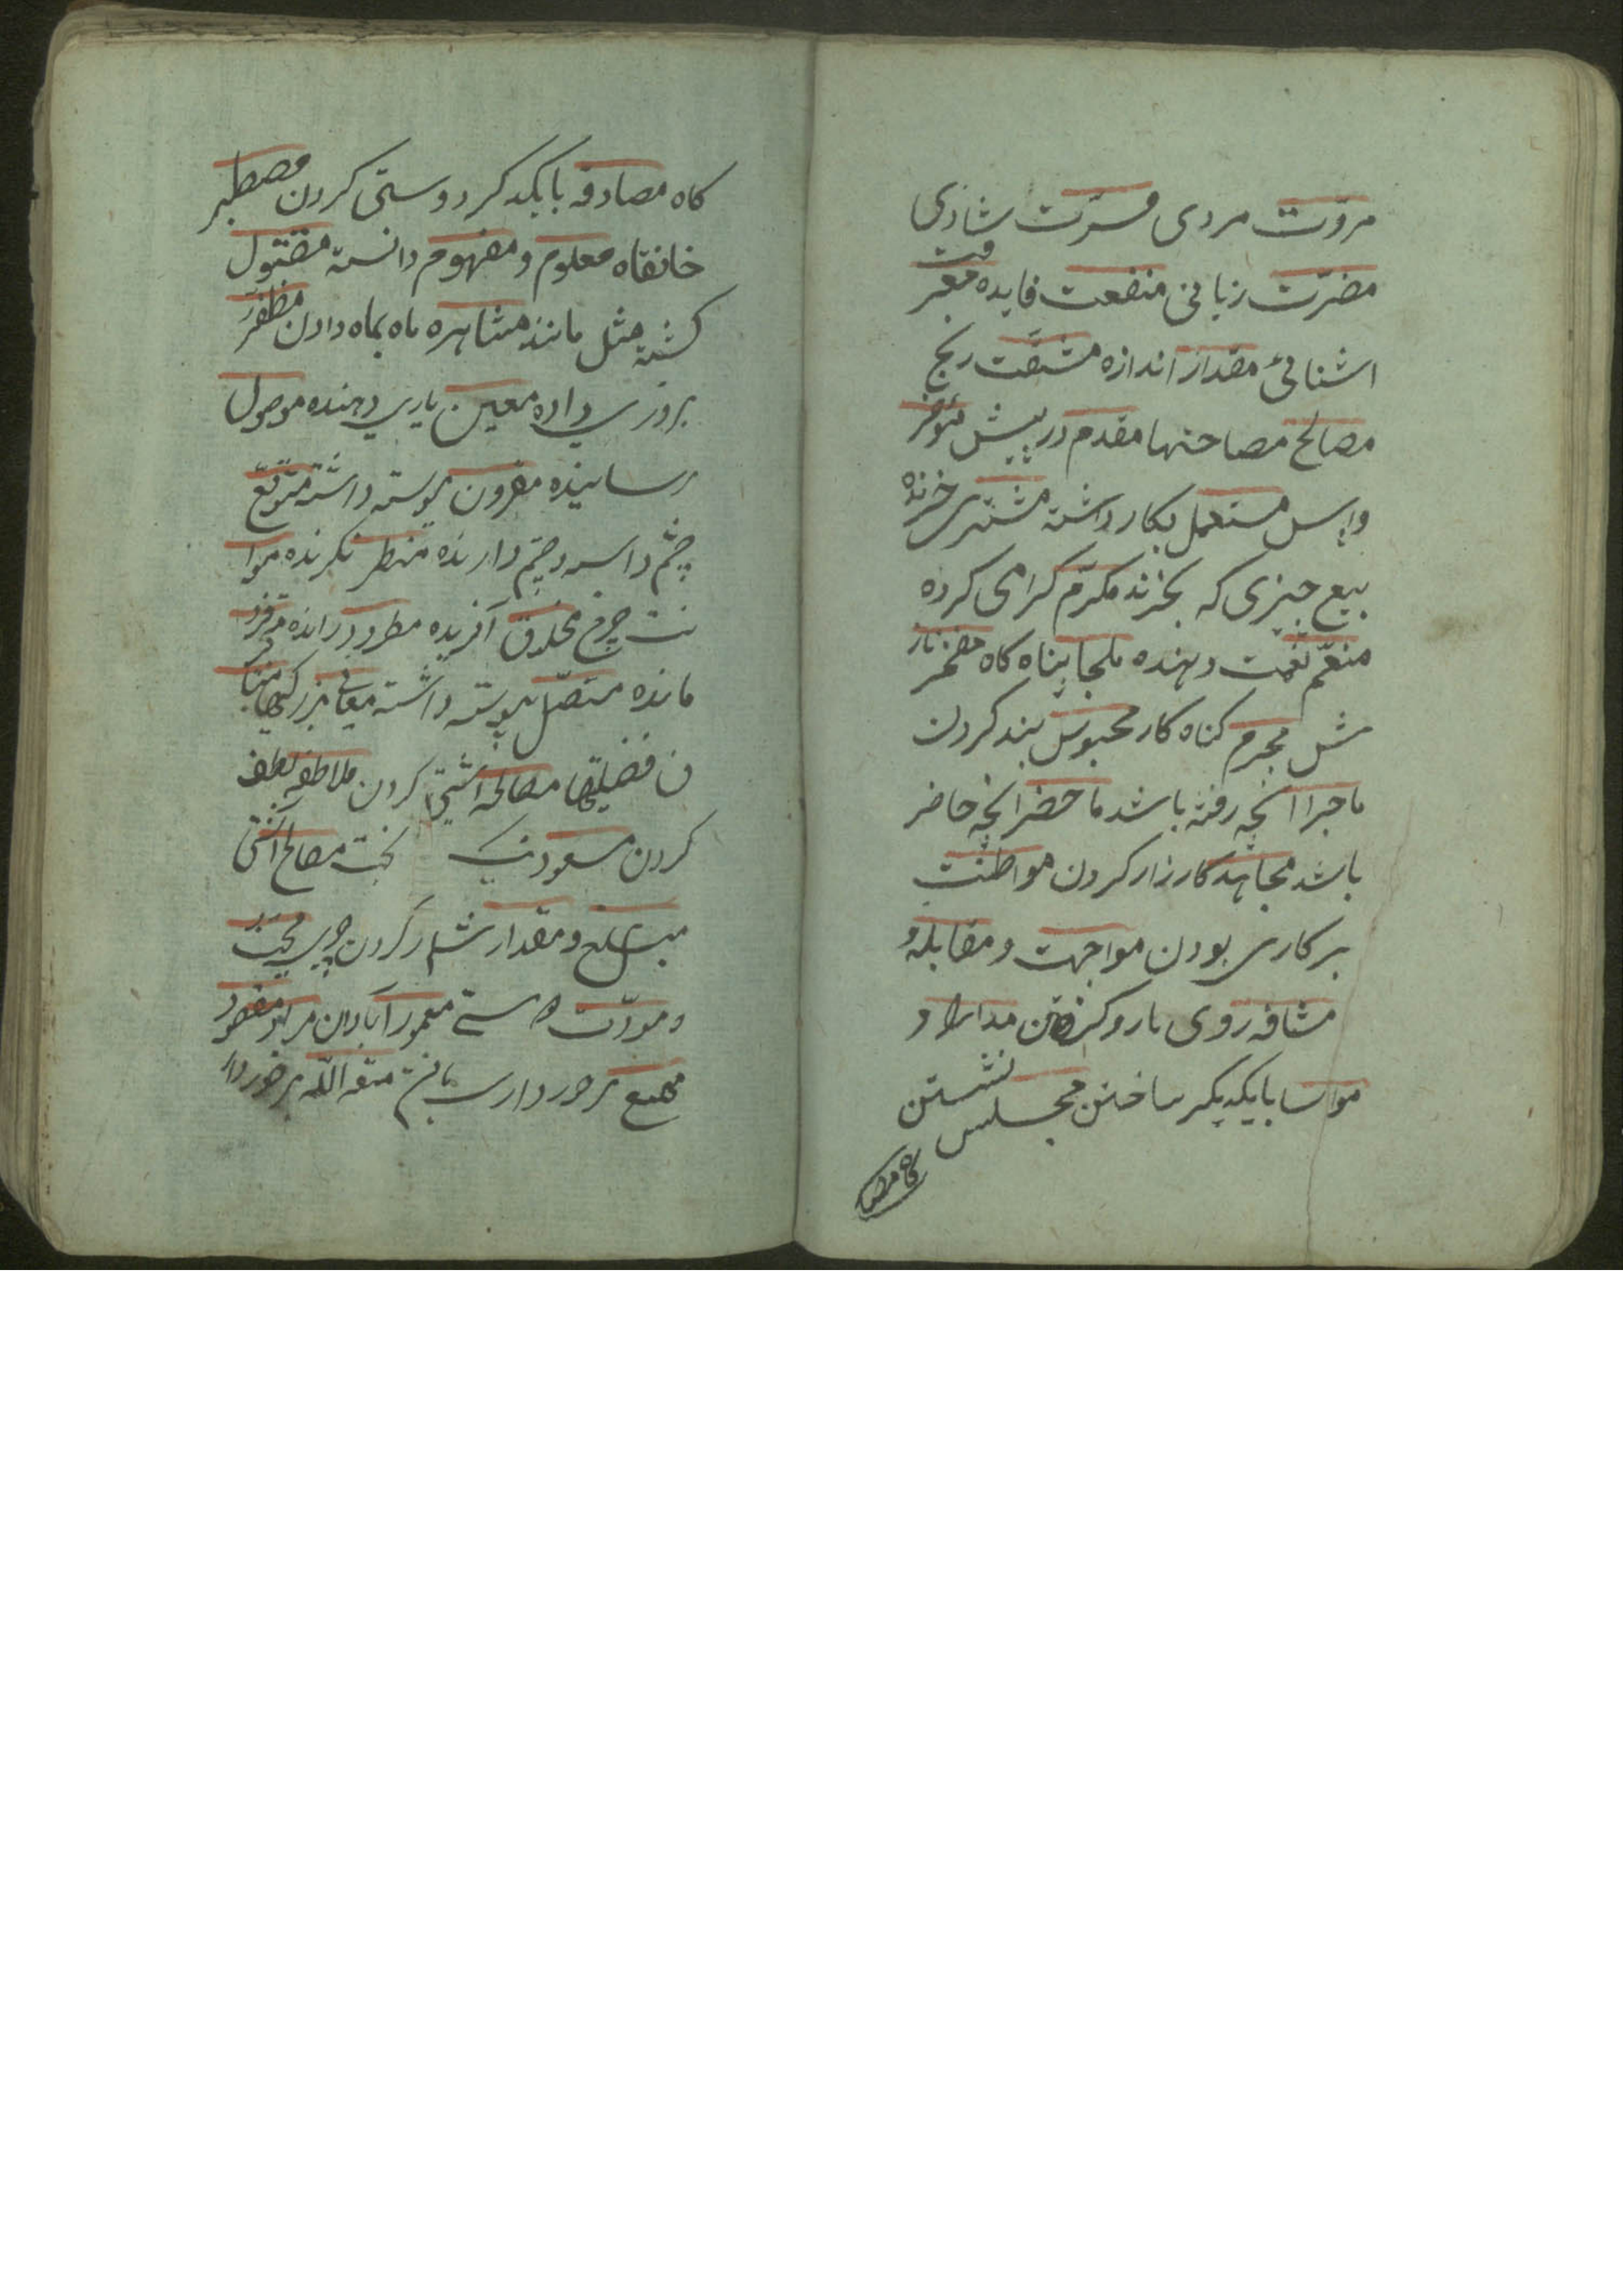 مروّت مردی مسرّت شادی
مضرّت زبانی منفعت فایده معرفت
اشنائی مقدار اندازه مشقّت رنج
مصالح مصاحتها مقدم در پیش مؤخر
واپس مستعمل بکار داشته مشتری خرنده
بیع چیزی که بخرند مکرّم کرامی کرده
منعّم نعمت دهنده ملجا پناه کاه
مجرم کناه کار محبوس بند کردن
ماجرا انچه رفته باشد ماحضر انچه حاضر
باشد مجاهد کارزار کردن مواظبت
بر کاری بودن مواجهت و مقابله و
مشافه روی با رو کردن مدارا و
مواسا بایکدیکر ساختن مجلس نشستن
کاه مصا
کاه مصادقه بایکدکر دوستی کردن مصطبر
خانقاه معلوم و مفهوم دانسته مقتول
کشته مثل مانند مشاهره ماه بماه دادن مظفر
بروزی داده معین یاری دهنده موصول
رسانیده مقرون پیوسته داشته متوقع
چشم داشته و چشم دارنده منتظر نکرنده موا
فت چرخ مخلوق آفریده مطرود رانده
مانده متصل پیوسته داشته معانی بزرکیها
ن فضیلتها مصالحه اشتی کردن ملاطفه لطف
کردن مسعود نیک بخت مصالح آشتی
مبلغ و مقدار شمار کردن چیزی محبت
و مودّت دوستی معمور آبادان مراد مقصود
برخورداری یافتن متعه الله برخوردار